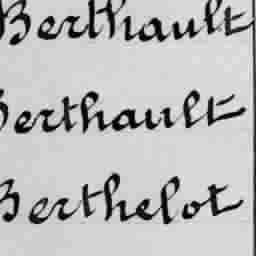 Berthault
Berthault
Berthelot